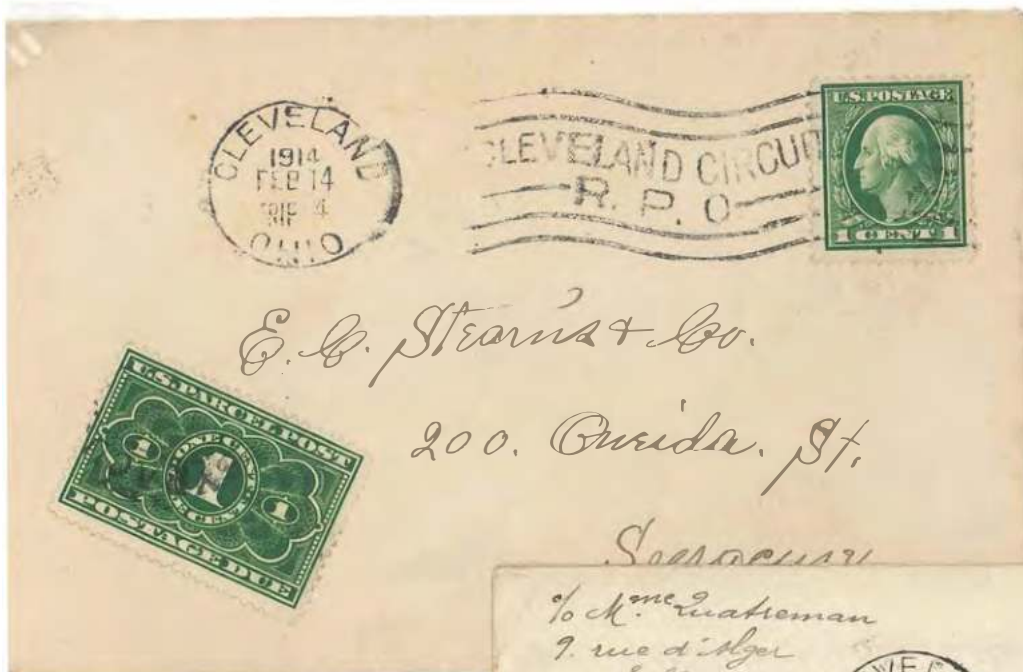 CLEVELAND
1914
FEB 14
OHIO
CLEVELAND CIRCUI
R. P. O
U.S. POSTAGE
1 CENT 1
E. C. Stearns & Co.
200. Oneida. St.
U.S. PARCEL POST
ONE CENT
1 1 1
ONE CENT
POSTAGE DUE
Syracuse
c/o Mme Quatreman
9. rue d'Alger